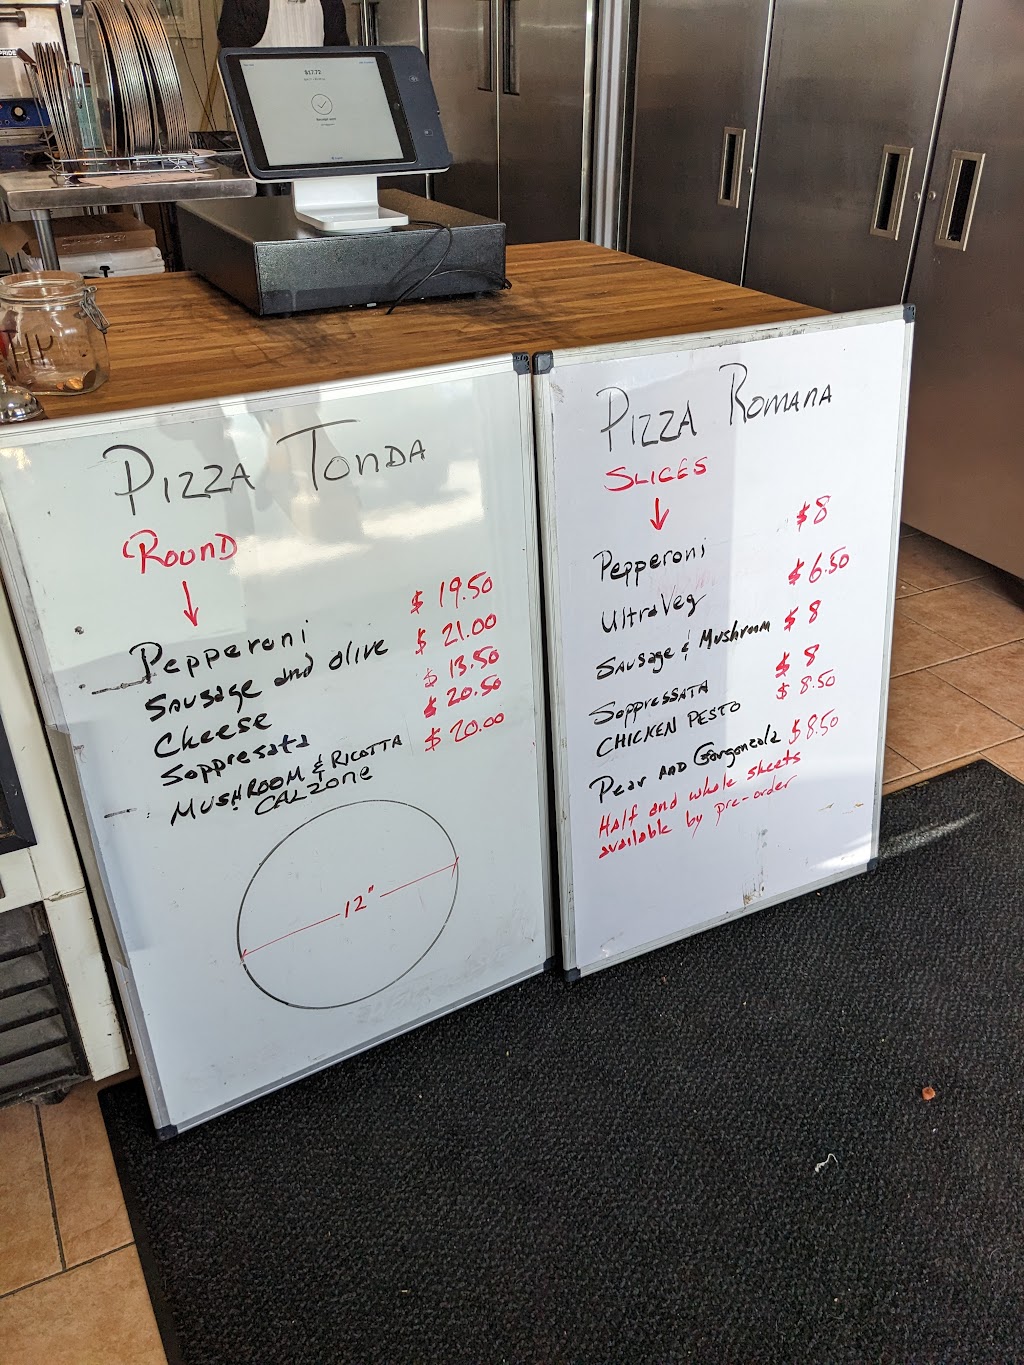 $17.72
PIZZA TONDA
ROUND
Pepperoni $19.50
Sausage and olive $21.00
Cheese $13.50
Soppresata $20.50
MUSHROOM & RICOTTA $20.00
CALZONE
12"
PIZZA ROMANA
SLICES
Pepperoni $8
UltraVeg $6.50
Sausage & Mushroom $8
Soppressata $8
CHICKEN PESTO $8.50
Pear AND Gorgonzola $8.50
Half and whole sheets
available by pre-order